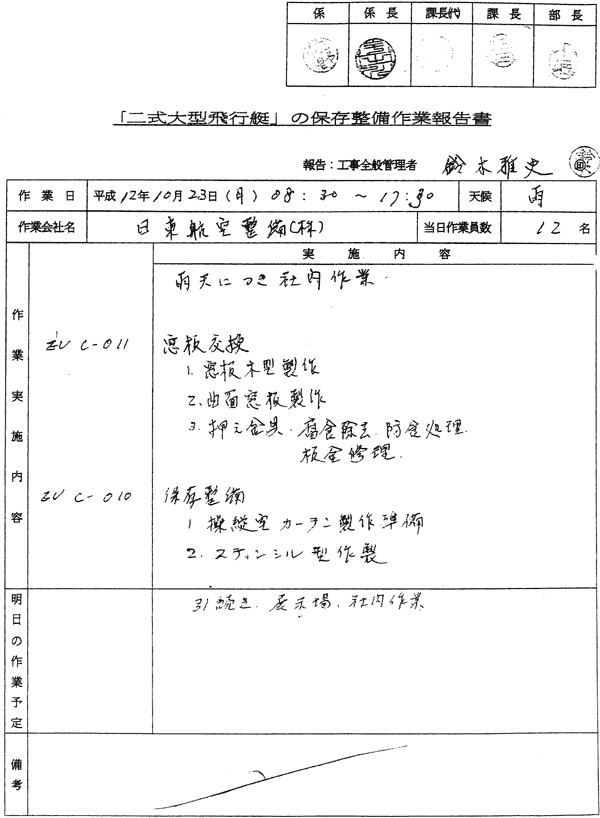 係 係長 課長代 課長 部長
「二式大型飛行艇」の保存整備作業報告書
報告：工事全般管理者 鈴木雅史
作業日 平成12年10月23日(月) 08:30 ～ 17:30 天候 雨
作業会社名 日東航空整備(株) 当日作業員数 12名
作業実施内容
実施内容
雨天につき社内作業.
C-011 窓板交換
1. 窓板木型製作
2. 曲面窓板製作
3. 押え金具. 腐食除去. 防食処理.
板金修理.
C-010 保存整備
1 操縦室カーテン製作準備
2. ステンシル型作製
明日の作業予定
続き. 展示場. 社内作業
備考